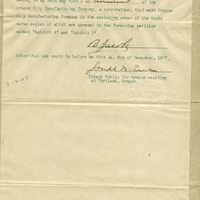 Oregon City Manufacturing Company, a corporation, that said Oregon
City Manufacturing Company is the exclusive owner of the trade
marks copies of which are annexed to the foregoing petition
marked "Exhibit A" and "Exhibit B".
A Jacobs
Subscribed and sworn to before me this day of December, 1907.
Joseph N.
Notary Public for Oregon residing
at Portland, Oregon.